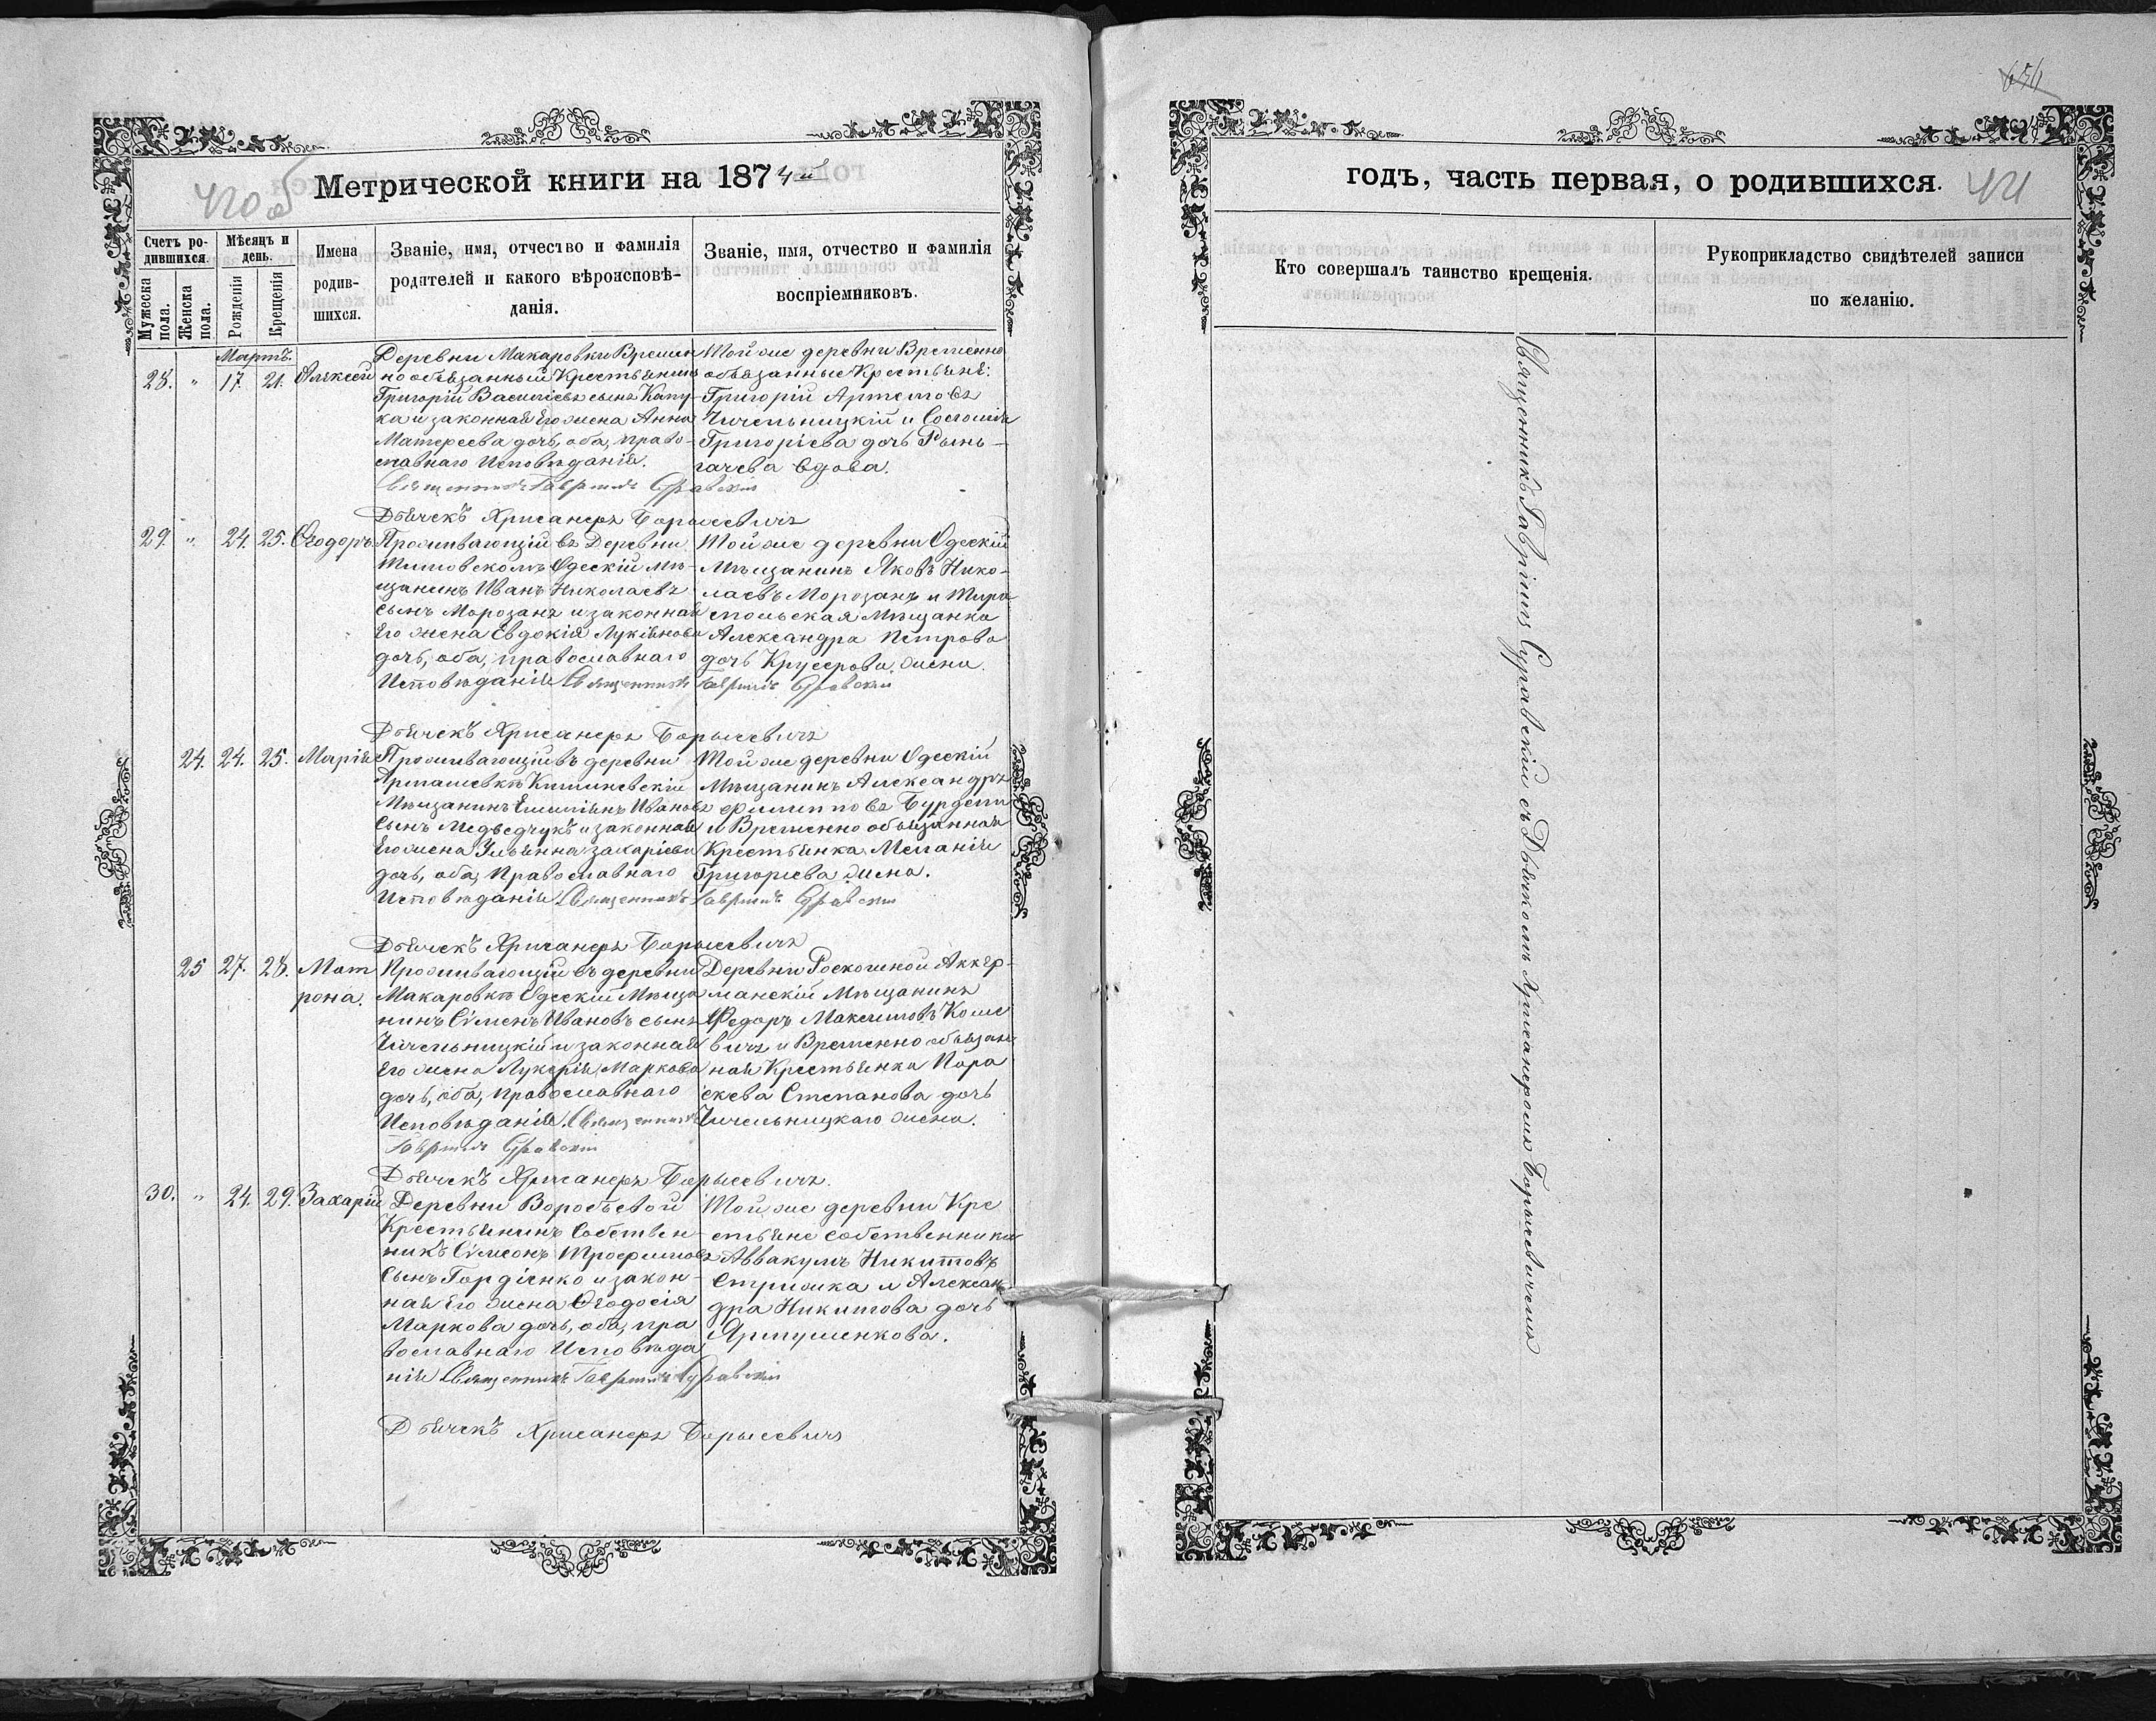 420 об
Метрической книги на 1874й
Счетъ ро-
дившихся.
Мужеска пола.
Женска пола.
Мѣсяцъ и
день.
Рожденія
Крещенія
Имена
родив-
шихся.
Званіе, имя, отчество и фамилія
родителей и какого вѣроисповѣ-
данія.
Званіе, имя, отчество и фамилія
воспріемниковъ.
Мартъ.
28. " 17. 21. Алексей
Деревни Макаровки Времен
но обязанный Крестьянинъ
Григорій Васильевъ сынъ Капу-
ка и законная Его жена Анна
Матереева дочь, оба, право-
славнаго Исповѣданія.
Священникъ Гавріилъ Суравскій
Тойже деревни Временно
обязанные Крестьяне:
Григорій Артемовъ
Чичельницкій и
Григоріева дочь
вдова.
Дьячекъ Хрисанфъ Борысевичъ
29. " 24. 25. Ѳеодоръ
Проживающій въ Деревни
Одескій Мѣ-
щанинъ Иванъ Николаевъ
сынъ Морозанъ и законная
Его жена Евдокія Лукіянова
дочь, оба, православнаго
Исповѣданія Священникъ Гавріилъ Суравскій
Тойже деревни Одескій
Мѣщанинъ Яковъ Нико-
лаевъ Морозанъ и Тира
спольская Мѣщанка
Александра Петрова
дочь Крусерова жена.
Дьячекъ Хрисанфъ Борысевичъ
24. 24. 25. Марія
Проживающій въ деревни
Кишиневскій
Мѣщанинъ Емиліянъ Ивановъ
Сынъ Медведчукъ и законная
Его жена Ульянна Захаріева
дочь, оба, Православнаго
Исповѣданія. Священникъ Гавріилъ Суравскій
Тойже деревни Одескій
Мѣщанинъ Александръ
Филипповъ
и Временно обязанная
Крестьянка Меланія
Григоріева жена.
Дьячекъ Хрисанфъ Борысевичъ
25 27. 28. Мат
рона.
Проживающій въ деревни
Макаровкѣ Одескій Мѣща
нинъ Сѵменъ Ивановъ сынъ
Чичельницкій и законная
Его жена Лукерія Маркова
дочь, оба, православнаго
Исповѣданія. Священникъ
Гавріилъ Суравскій
Деревни Роскошной Аккер-
манскій Мѣщанинъ
Федоръ Максимовъ Коше
вичъ и Временно обязан-
ная Крестьянка Пара
скева Степанова дочь
Чичельницкаго жена.
Дьячекъ Хрисанфъ Борысевичъ.
30. " 24. 29. Захарій
Деревни Воробьевой
Крестьянинъ Собствен-
никъ Сѵмеонъ Трофимовъ
Сынъ Гордіенко и закон-
ная Его жена Ѳеодосія
Маркова дочь, оба, пра
вославнаго Исповѣда
нія Священникъ Гавріилъ Суравскій
Тойже деревни Кре
стьяне собственники
Аввакумъ Никитовъ
Стрижка и Алексан
дра Никитова дочь
Ярмушенкова.
Дьячекъ Хрисанфъ Борысевичъ
годъ, часть первая, о родившихся.
421
Кто совершалъ таинство крещенія.
Рукоприкладство свидѣтелей записи
по желанію.
Священникъ Гавріилъ Суравскій съ Дьячкомъ Хрисанфомъ Борысевичемъ